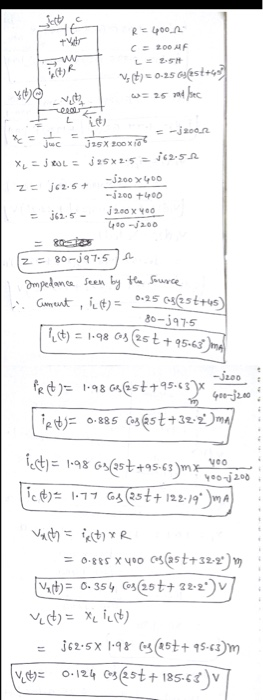 ic(t) C
+ Vx(t) -
iR(t) R
Vs(t)
- VL(t) +
L iL(t)
R = 400 Ω
C = 200 μF
L = 2.5H
Vs(t) = 0.25 cos(25t+45°)
ω = 25 rad/sec
Xc = 1/jωC = 1/j25×200×10^-6 = -j200Ω
XL = jωL = j25×2.5 = j62.5Ω
Z = j62.5 + -j200×400/-j200+400
= j62.5 - j200×400/400-j200
Z = 80-j97.5 Ω
Impedance seen by the source
∴ Current, iL(t) = 0.25 cos(25t+45)/80-j97.5
iL(t) = 1.98 cos(25t+95.63°)mA
iR(t) = 1.98 cos(25t+95.63)m × -j200/400-j200
iR(t) = 0.885 cos(25t+32.2°)mA
ic(t) = 1.98 cos(25t+95.63)m× 400/400-j200
ic(t) = 1.77 cos(25t+122.19°)mA
Vx(t) = iR(t) × R
= 0.885 × 400 cos(25t+32.2°)m
Vx(t) = 0.354 cos(25t+32.2°)V
VL(t) = XL iL(t)
= j62.5 × 1.98 cos(25t+95.63)m
VL(t) = 0.124 cos(25t+185.63°)V